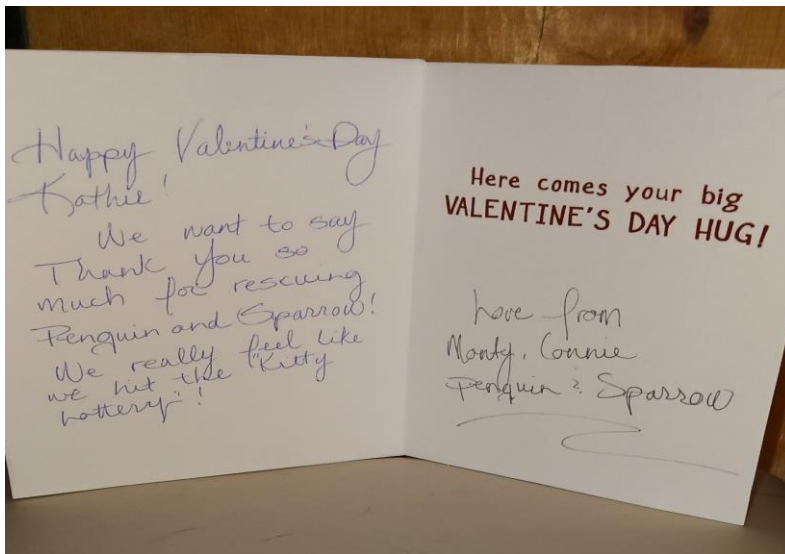 Happy Valentine's Day
Kathie!
We want to say
Thank you so
much for rescuing
Penguin and Sparrow!
We really feel like
we hit the "Kitty
Lottery"!
Here comes your big
VALENTINE'S DAY HUG!
Love from
Monty, Connie
Penguin & Sparrow